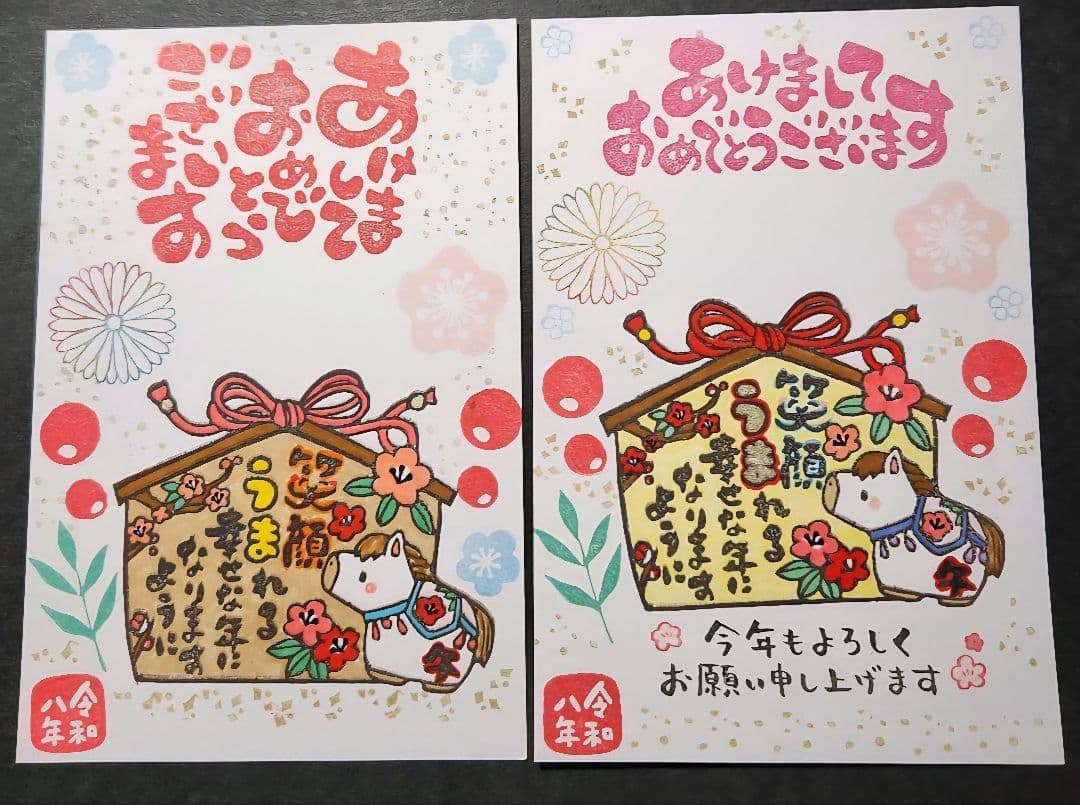 あけまして
おめでとう
ございます
笑顔
うまれる
幸せな年に
なります
ように
午
令和
八年
あけまして
おめでとうございます
笑顔
うまれる
幸せな年に
なります
ように
午
今年もよろしく
お願い申し上げます
令和
八年